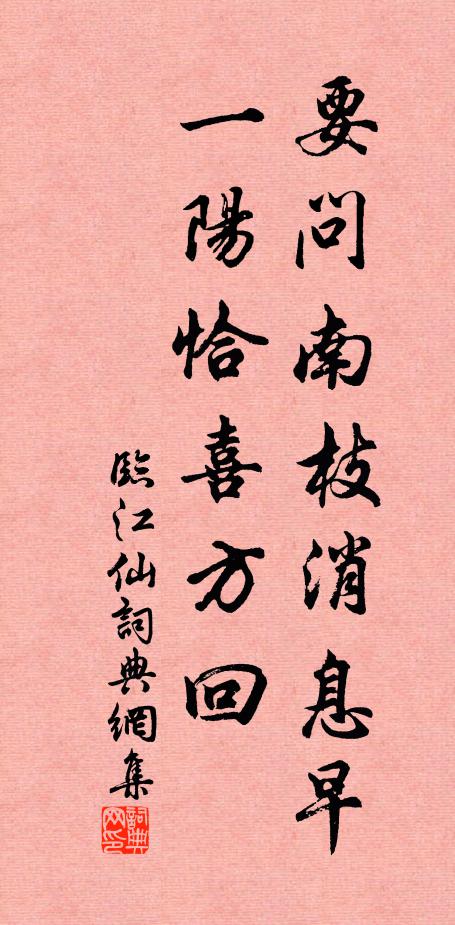 要問南枝消息早
一陽恰喜方回
臨江仙詞典網集
詞典网印